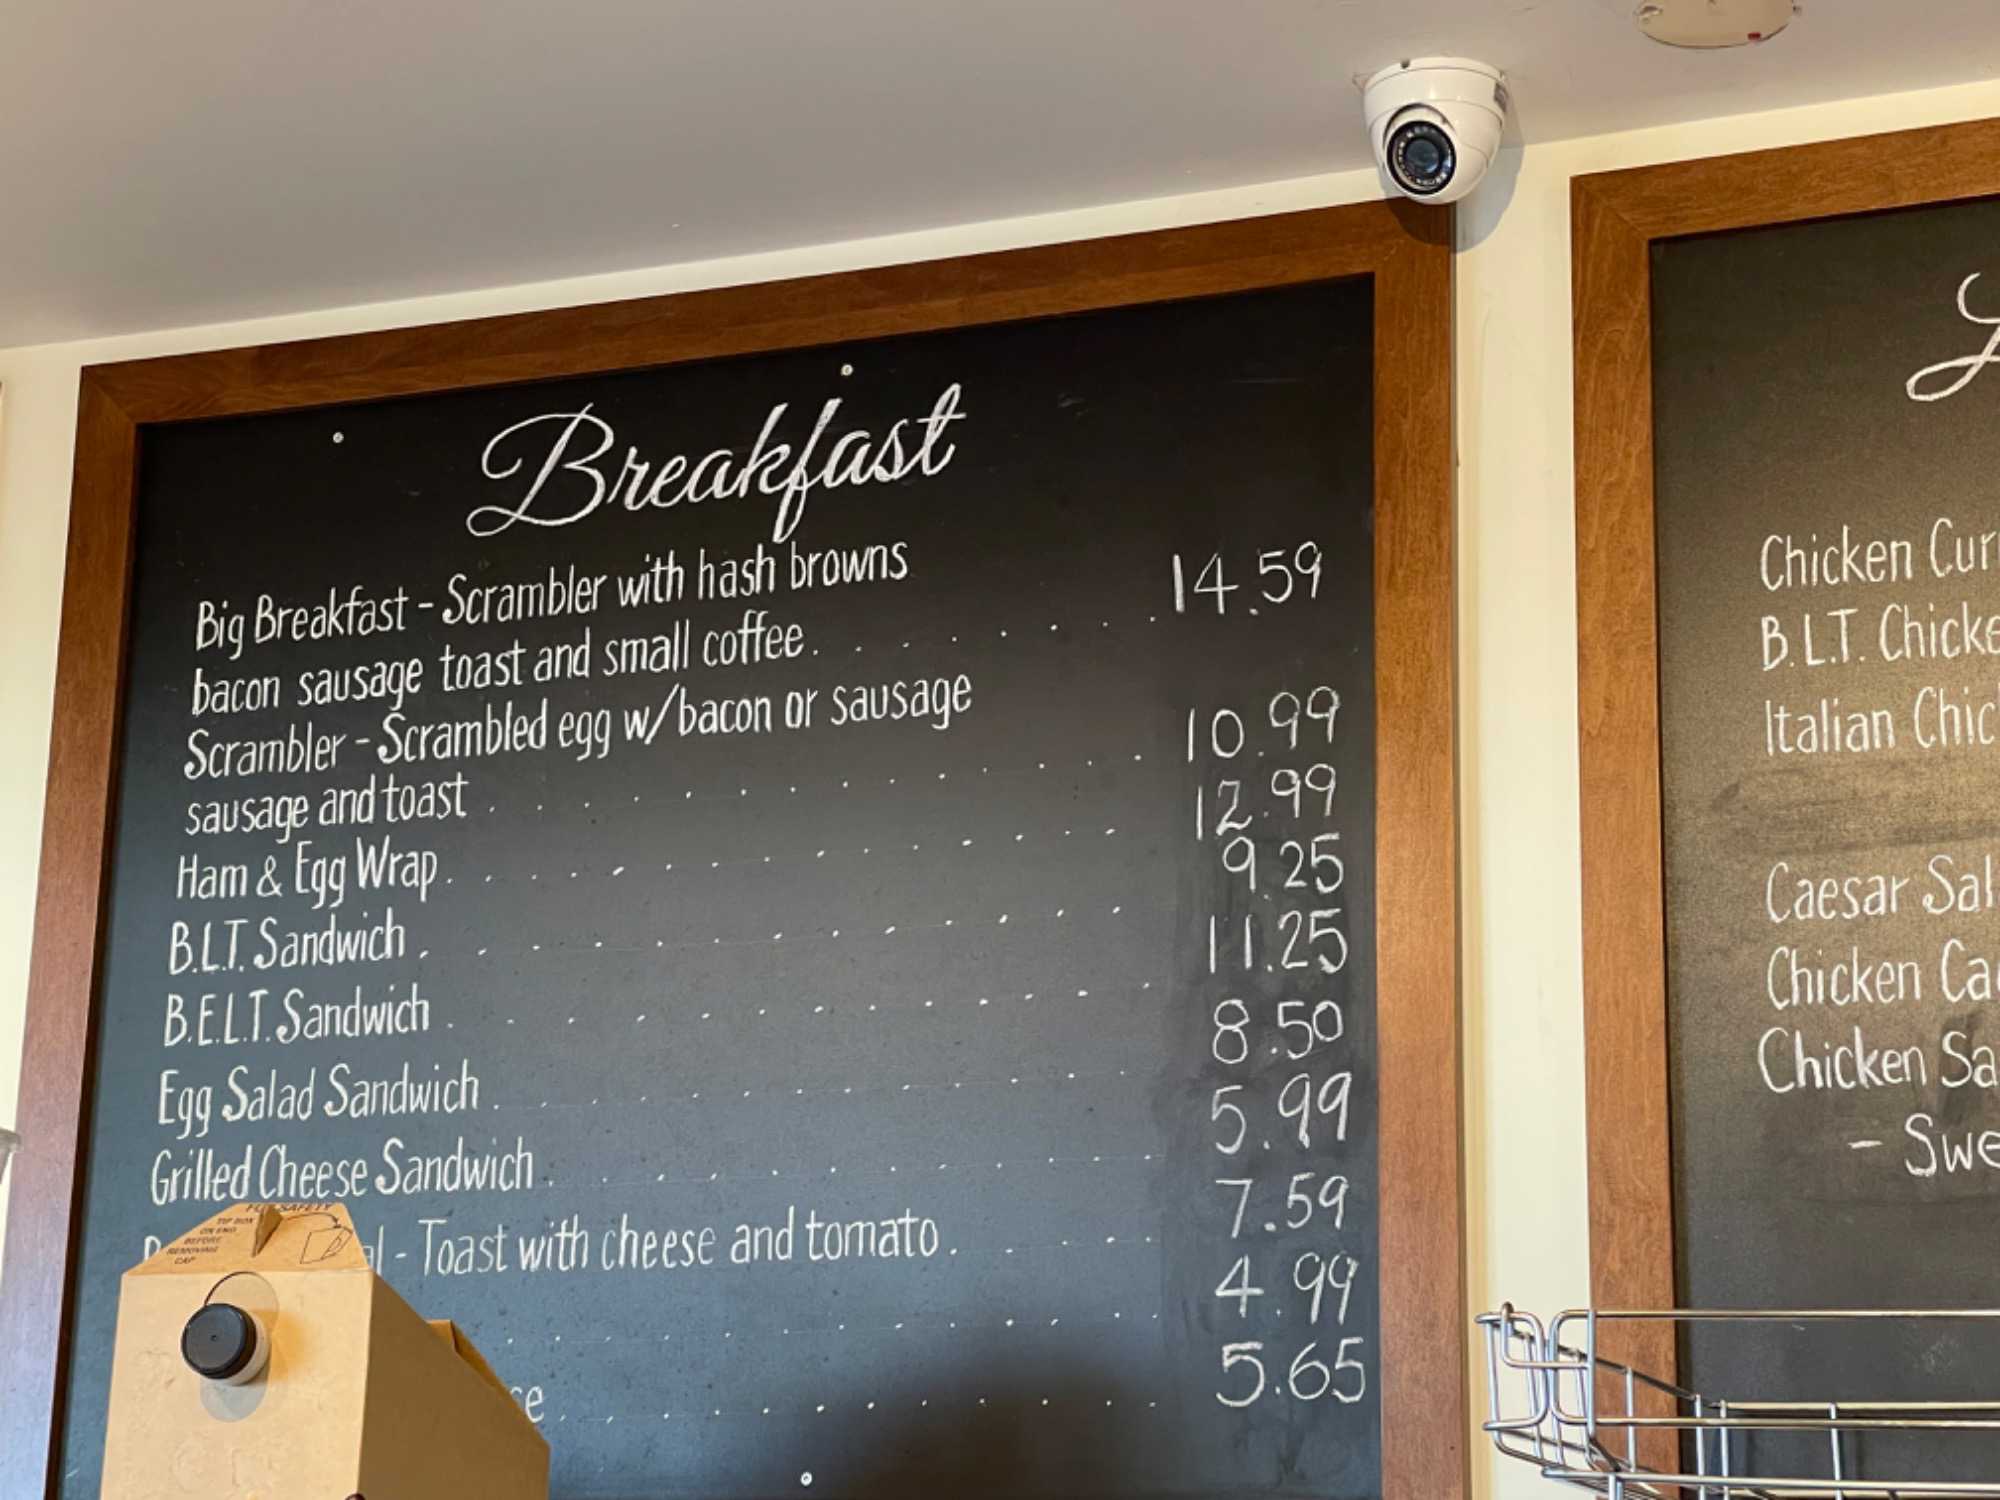 Breakfast
Big Breakfast - Scrambler with hash browns
bacon sausage toast and small coffee . . . . . . . . 14.59
Scrambler - Scrambled egg w/bacon or sausage
sausage and toast . . . . . . . . . . . . . . 10.99
Ham & Egg Wrap . . . . . . . . . . . . . . 12.99
B.L.T. Sandwich . . . . . . . . . . . . . 9.25
B.E.L.T. Sandwich . . . . . . . . . . . . . 11.25
Egg Salad Sandwich . . . . . . . . . . . . 8.50
Grilled Cheese Sandwich . . . . . . . . . . . 5.99
- Toast with cheese and tomato . . . . . 7.59
. . . . . . . . . . . . 4.99
. . . . . . . . . . . . 5.65
TIP BOX
ON END
BEFORE
REMOVING
CAP
Chicken
B.L.T.
Italian
Caesar
Chicken
Chicken
-